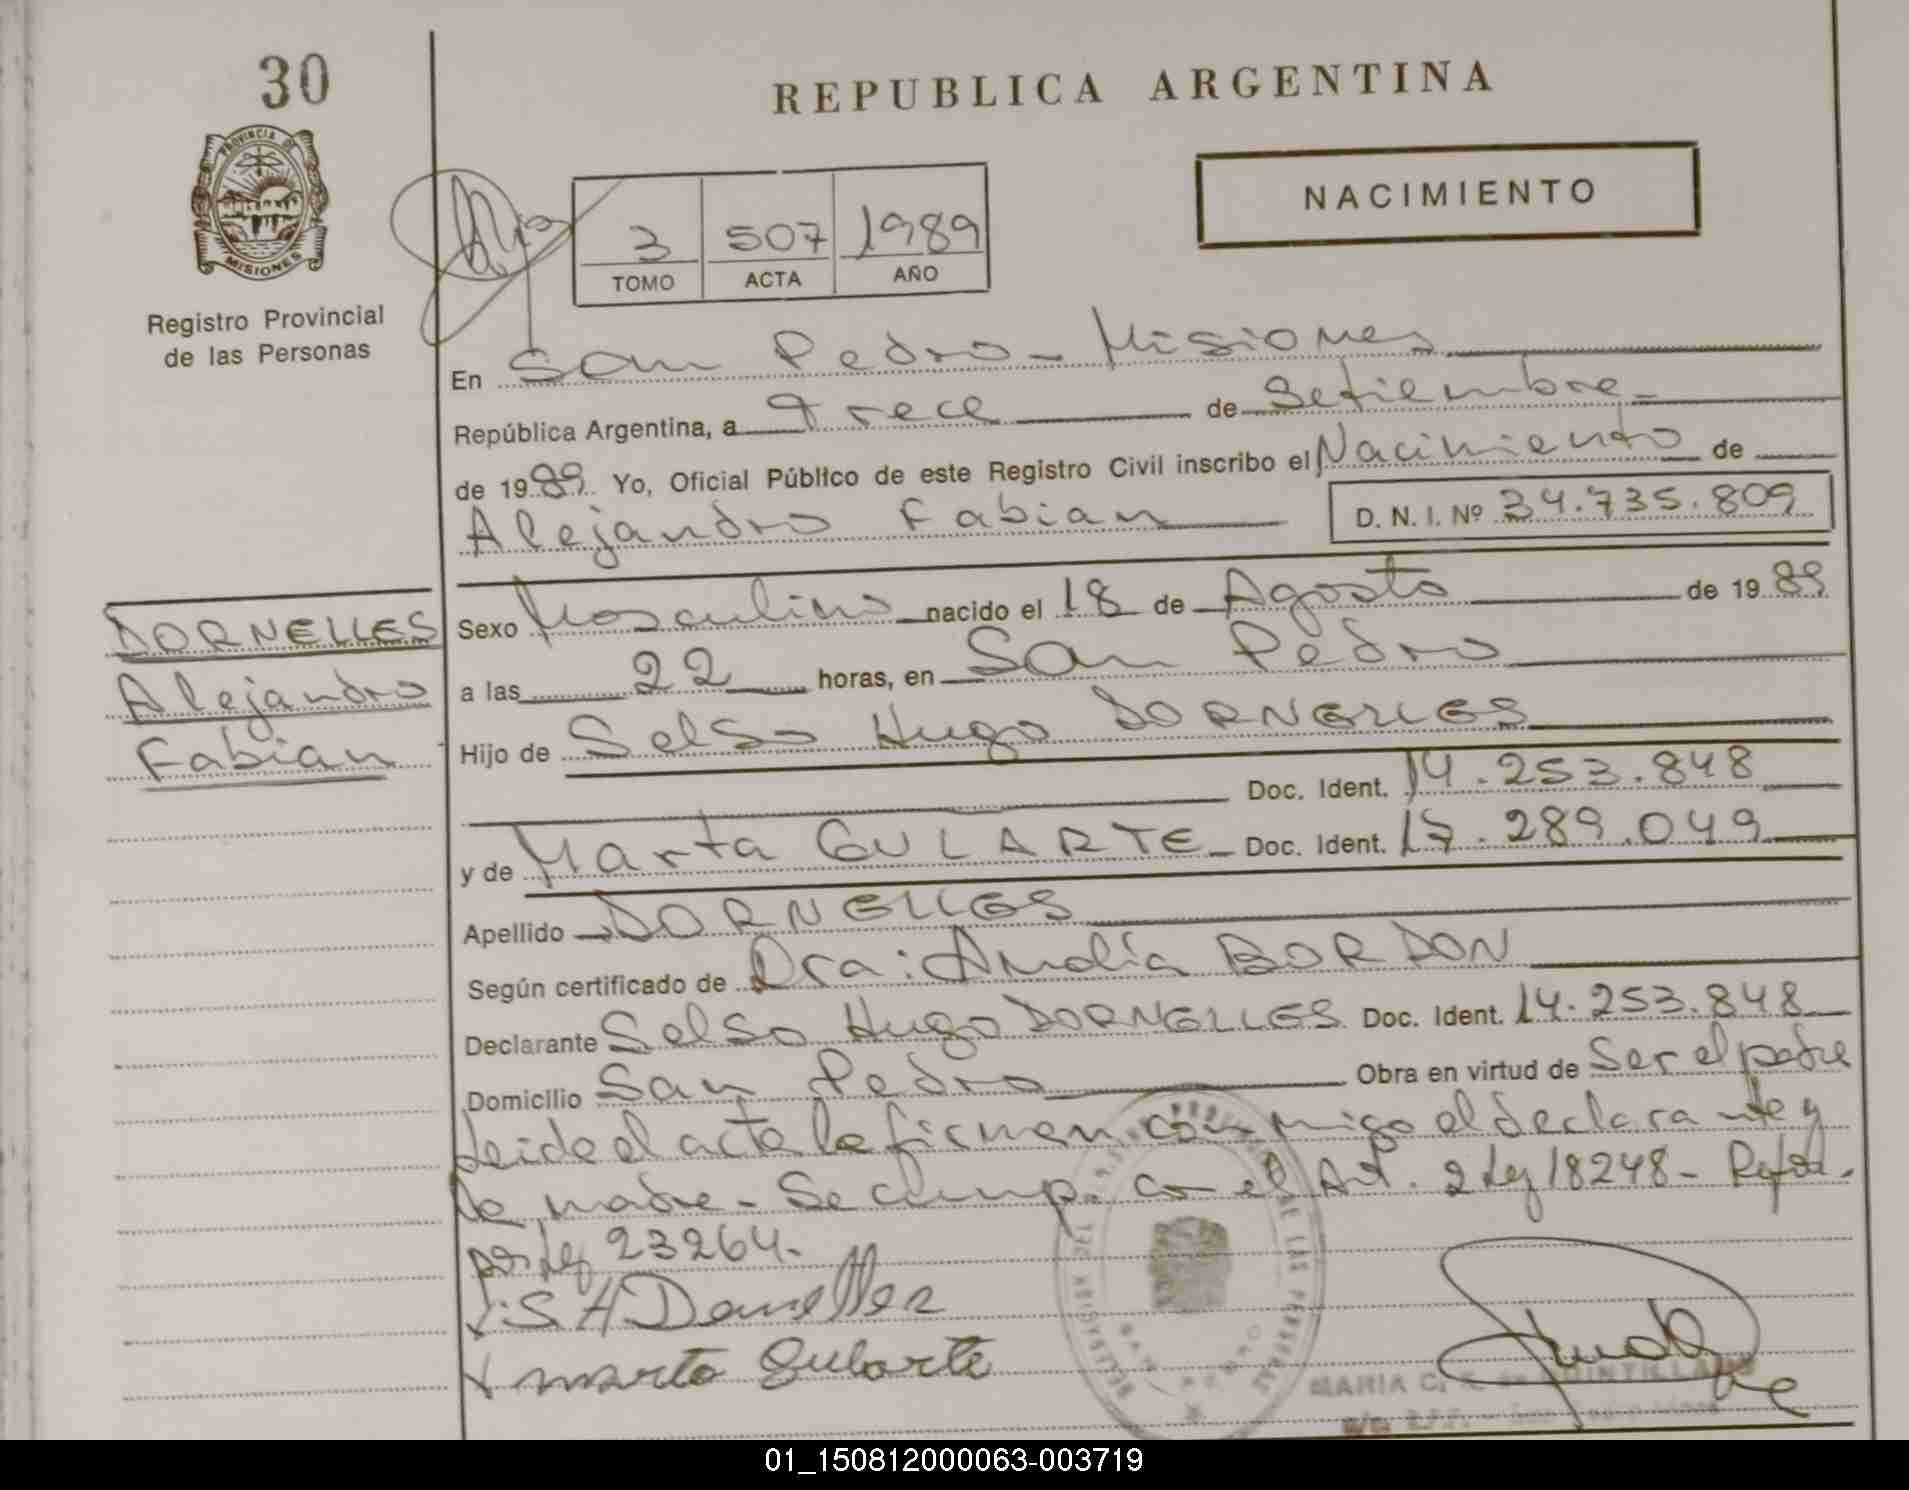 30
REPUBLICA ARGENTINA
PROVINCIA DE
MISIONES
NACIMIENTO
3 507 1989
TOMO ACTA AÑO
Registro Provincial
de las Personas
En San Pedro - Misiones
República Argentina, a Trece de Setiembre
de 1989. Yo, Oficial Público de este Registro Civil inscribo el Nacimiento de
Alejandro Fabian D. N. I. Nº 34.735.809
DORNELLES
Alejandro
Fabian
Sexo Masculino nacido el 18 de Agosto de 1989
a las 22 horas, en San Pedro
Hijo de Selso Hugo DORNELLES
Doc. Ident. 14.253.848
y de Marta GULARTE Doc. Ident. 17.289.049
Apellido DORNELLES
Según certificado de Dra: Analía BORDON
Declarante Selso Hugo DORNELLES Doc. Ident. 14.253.848
Domicilio San Pedro Obra en virtud de Ser el padre
Leida el acta la firman conmigo el declarante y
la madre - Se cump. con el Art. 2 Ley 18248 -
por Ley 23264.
S H Dornelles
Marta Gularte
DE LAS PERSONAS
MARIA C.
01_150812000063-003719